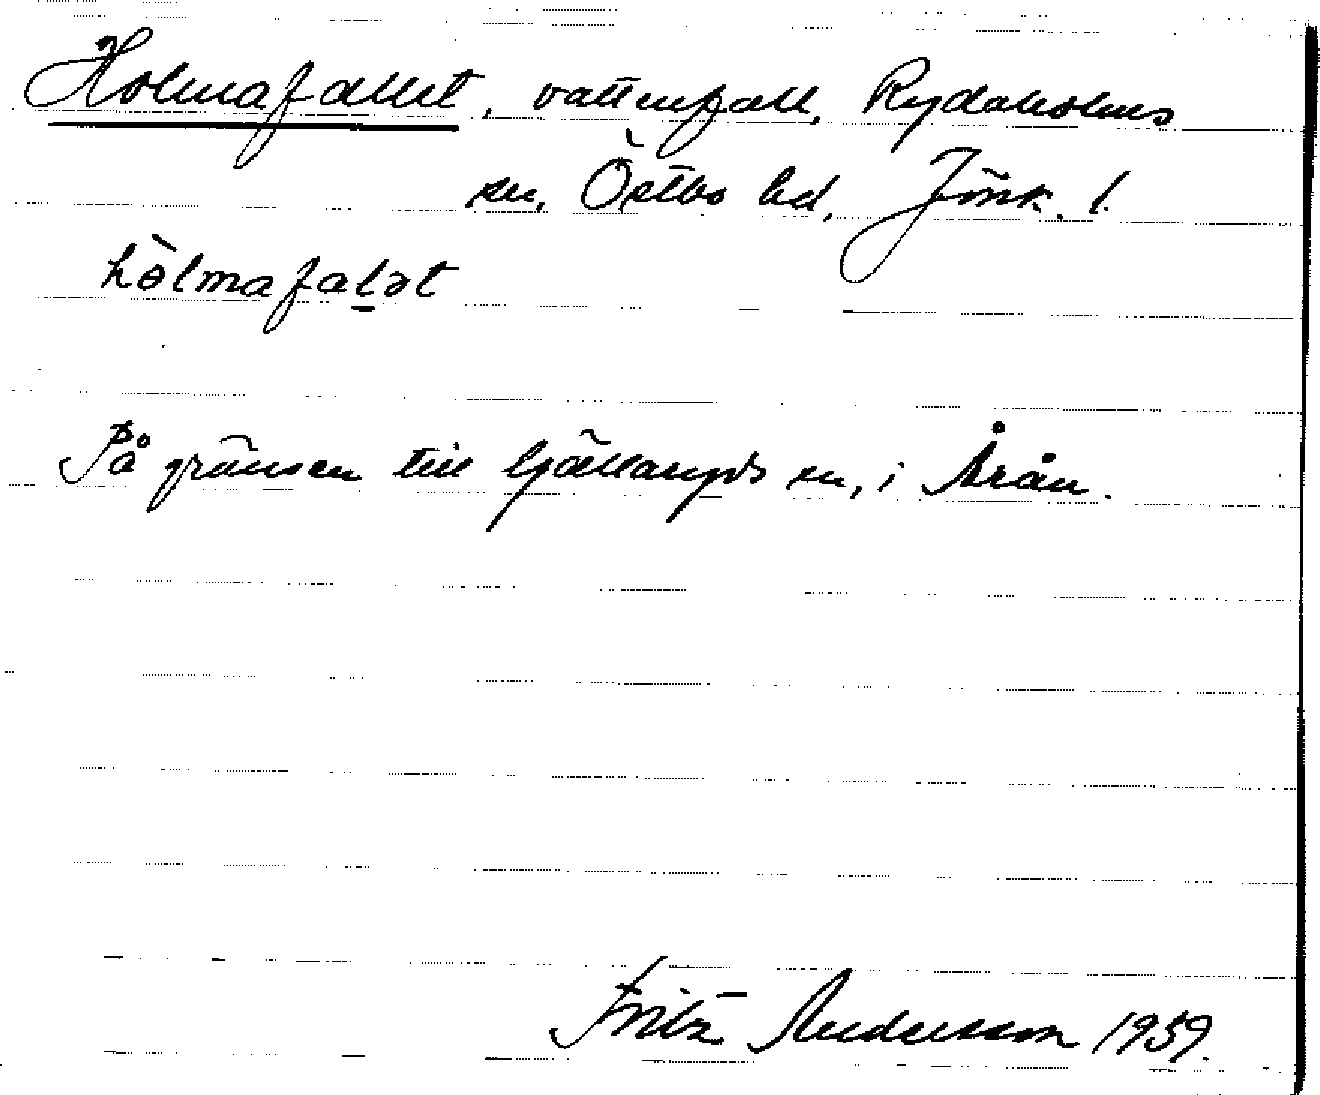 Holmafallet, vattenfall, Rydaholms
sn, Östbo hd, Jönk. l.
hòlmafalət
På gränsen till Gällaryds sn, i Årån.
Fritz Andersson 1959.